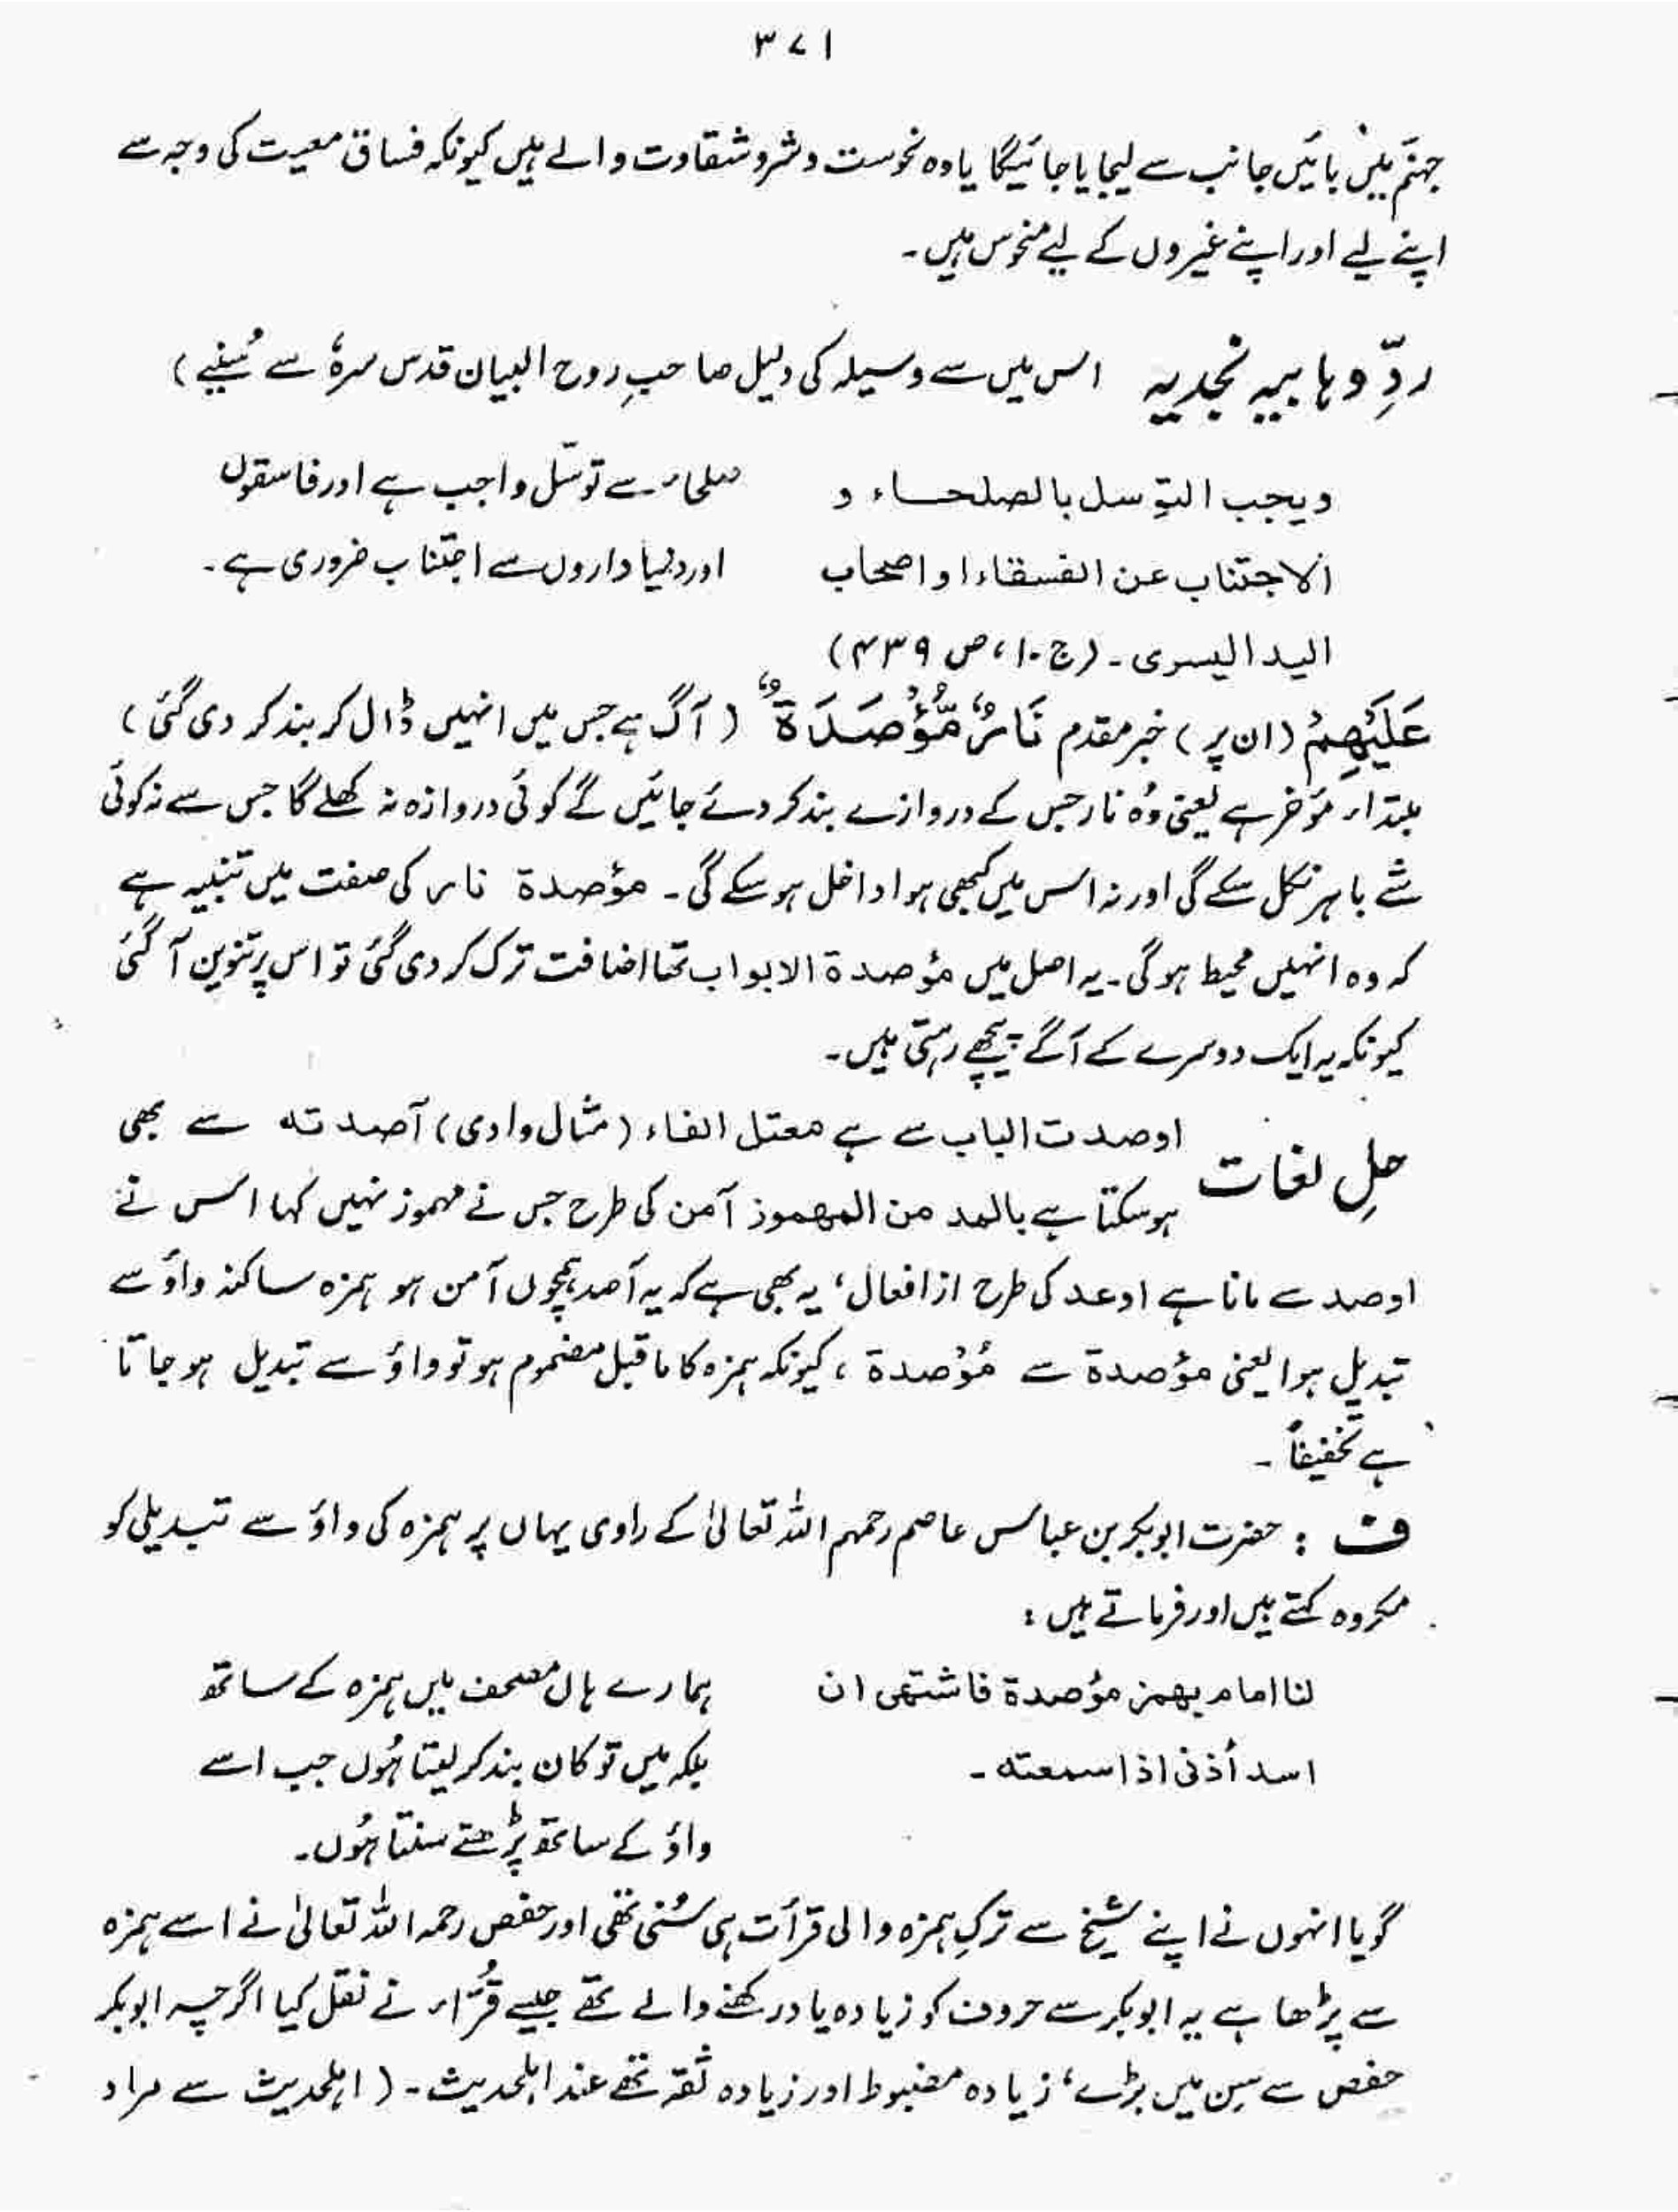 ۳۷۱
جہنم میں بائیں جانب سے لیجایا جائیگا یا وہ نحوست و شر و شقاوت والے ہیں کیونکہ فساق معیت کی وجہ سے
اپنے لیے اور اپنے غیروں کے لیے منحوس ہیں۔
ردِّ وہابیہ نجدیہ اس میں سے وسیلہ کی دلیل صاحبِ روح البیان قدس سرہٗ سے سُنیے)
ویجب التوسل بالصلحاء و
الاجتناب عن الفسقاء او اصحاب
الید الیسری۔ (ج ۱۰، ص ۴۳۹)
صلحاء سے توسّل واجب ہے اور فاسقوں
اور دنیا داروں سے اجتناب ضروری ہے۔
عَلَيْهِمْ (ان پر) خبر مقدم نَارٌ مُّؤْصَدَةٌ (آگ ہے جس میں انہیں ڈال کر بند کر دی گئی)
مبتداء مؤخر ہے یعنی وُہ نار جس کے دروازے بند کر دئے جائیں گے کوئی دروازہ نہ کھلے گا جس سے نہ کوئی
شے باہر نکل سکے گی اور نہ اس میں کبھی ہوا داخل ہو سکے گی۔ مؤصدۃ نار کی صفت میں تنبیہ ہے
کہ وہ انہیں محیط ہوگی۔ یہ اصل میں مؤصدۃ الابواب تھا اضافت ترک کر دی گئی تو اس پر تنوین آ گئی
کیونکہ یہ ایک دوسرے کے آگے پیچھے رہتی ہیں۔
حلِ لغات اوصدت الباب سے ہے معتل الفاء (مثال وادی) آصدتہ سے بھی
ہو سکتا ہے بالمد من المھموز آمن کی طرح جس نے مہموز نہیں کہا اس نے
اوصد سے مانا ہے اوعد کی طرح از افعال، یہ بھی ہے کہ یہ آصد ہمچوں آمن ہو ہمزہ ساکنہ واؤ سے
تبدیل ہوا یعنی مؤصدۃ سے مُؤْصدۃ، کیونکہ ہمزہ کا ماقبل مضموم ہو تو واؤ سے تبدیل ہو جاتا
ہے تخفیفاً۔
ف : حضرت ابوبکر بن عباس عاصم رحمہم اللہ تعالیٰ کے راوی یہاں پر ہمزہ کی واؤ سے تبدیلی کو
مکروہ کہتے ہیں اور فرماتے ہیں :
لنا امام یھمز مؤصدۃ فاشتھی ان
اسد اُذنی اذا سمعتہ۔
ہمارے ہاں مصحف میں ہمزہ کے ساتھ
بلکہ میں تو کان بند کر لیتا ہُوں جب اسے
واؤ کے ساتھ پڑھتے سنتا ہُوں۔
گویا انہوں نے اپنے شیخ سے ترکِ ہمزہ والی قرأت ہی سُنی تھی اور حفص رحمہ اللہ تعالیٰ نے اسے ہمزہ
سے پڑھا ہے یہ ابوبکر سے حروف کو زیادہ یاد رکھنے والے تھے جیسے قُرّاء نے نقل کیا اگرچہ ابوبکر
حفص سے سِن میں بڑے، زیادہ مضبوط اور زیادہ ثقہ تھے عند اہلحدیث۔ (اہلحدیث سے مراد